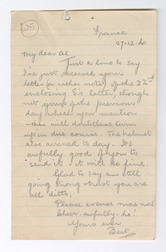 25
France
27-12-16
My dear Al
Just a line to say
I've just received your
letter (or rather note) of the 22nd
enclosing Si's letter, though
not yours of the previous
day which you mention
– this will doubtless turn
up in due course. The helmet
also arrived to-day. It's
awfully good of you to
send it & it will be fine.
Glad to say am still
going strong & trust you are
all ditto.
Please excuse mas
sheer awfully, he
Yours ever
Bert